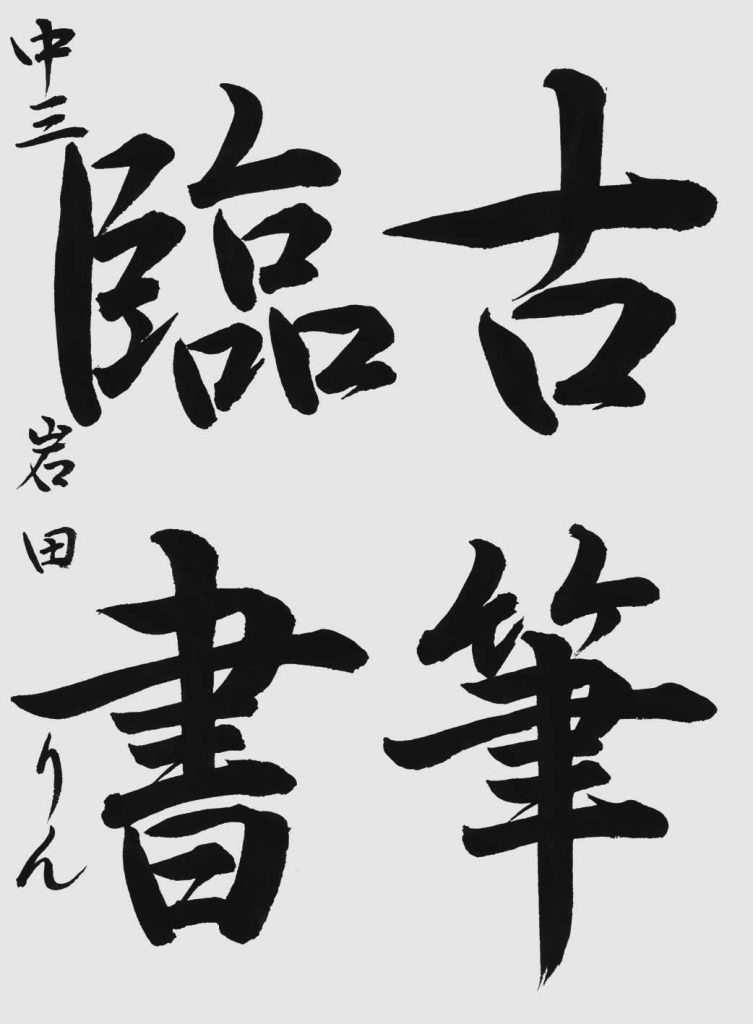 古筆
臨書
中三 岩田りん